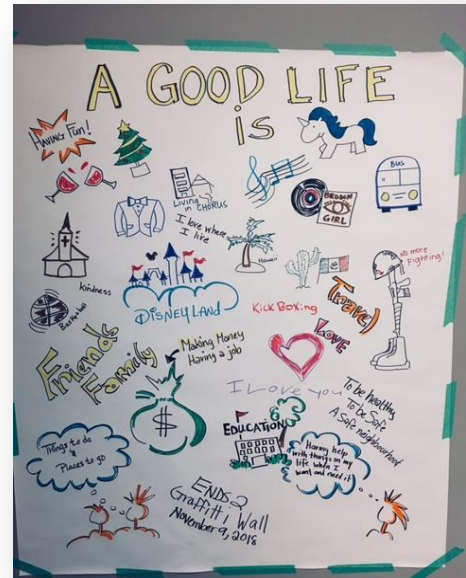 A GOOD LIFE
is
HAVING FUN!
BUS
Living
in CHORUS
I love where
I live
GIRL
Hawaii
No more
Fighting!
Kindness
Basketball
DISNEYLAND
KickBoxing
Travel
Friends
Family
Making Money
Having a job
LOVE
$
I Love you
To be healthy
To be Safe
A Safe neighbourhood
EDUCATION
Things to do
&
Places to go
Having help
with things in my
life when I
want and need it
ENDS 2
Graffiti Wall
November 9, 2018